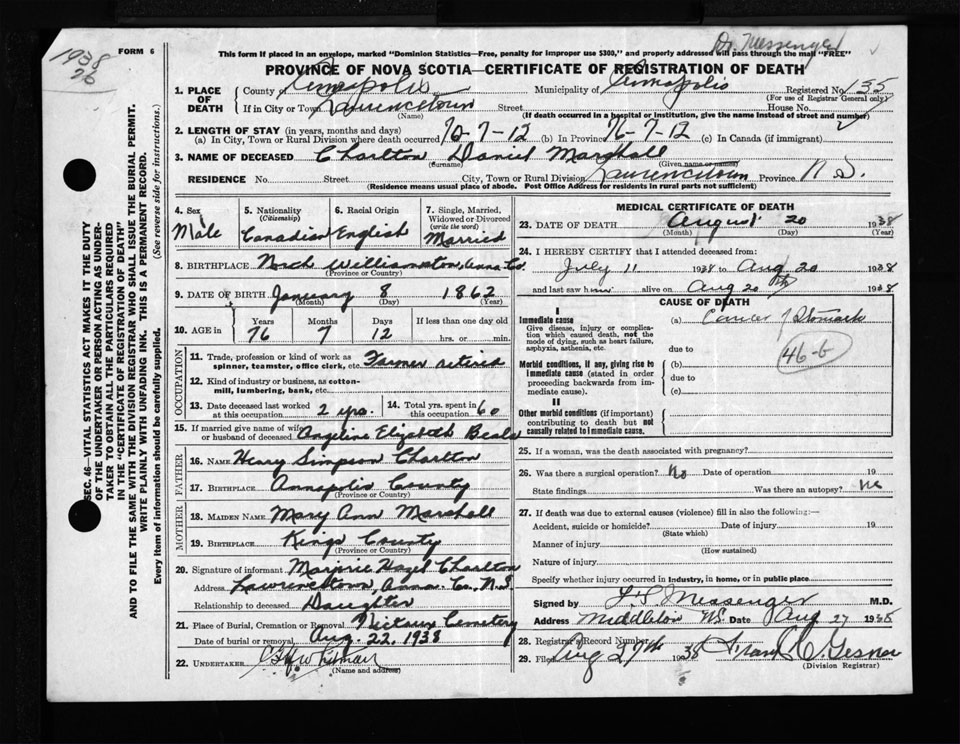 1938
26
FORM 6
Dr. Messenger
This form if placed in an envelope, marked "Dominion Statistics—Free, penalty for improper use $300," and properly addressed will pass through the mail "FREE"
PROVINCE OF NOVA SCOTIA—CERTIFICATE OF REGISTRATION OF DEATH
1. PLACE OF DEATH
County of Annapolis Municipality of Annapolis Registered No. 155
(For use of Registrar General only)
If in City or Town Lawrencetown Street House No.
(Name) (If death occurred in a hospital or institution, give the name instead of street and number)
2. LENGTH OF STAY (in years, months and days)
(a) In City, Town or Rural Division where death occurred 70-7-12 (b) In Province 76-7-12 (c) In Canada (if immigrant)
3. NAME OF DECEASED Charlton Daniel Marshall
(Surname) (Given name or names)
RESIDENCE No. Street City, Town or Rural Division Lawrencetown Province N.S.
(Residence means usual place of abode. Post Office Address for residents in rural parts not sufficient)
4. Sex Male
5. Nationality (Citizenship) Canadian
6. Racial Origin English
7. Single, Married, Widowed or Divorced (write the word) Married
8. BIRTHPLACE North Williamston, Anna. Co.
(Province or Country)
9. DATE OF BIRTH January 8 1862
(Month) (Day) (Year)
10. AGE in Years Months Days If less than one day old
76 7 12 hrs. or min.
OCCUPATION
11. Trade, profession or kind of work as spinner, teamster, office clerk, etc. Farmer retired
12. Kind of industry or business, as cotton-mill, lumbering, bank, etc.
13. Date deceased last worked at this occupation 2 yrs. 14. Total yrs. spent in this occupation 60
15. If married give name of wife or husband of deceased Angeline Elizabeth Beals
FATHER
16. Name Henry Simpson Charlton
17. Birthplace Annapolis County
(Province or Country)
MOTHER
18. Maiden Name Mary Ann Marshall
19. Birthplace Kings County
(Province or Country)
20. Signature of informant Marjorie Hazel Charlton
Address Lawrencetown, Anna. Co. N.S.
Relationship to deceased Daughter
21. Place of Burial, Cremation or Removal Nictaux Cemetery
Date of burial or removal Aug. 22, 1938
22. UNDERTAKER
(Name and address)
MEDICAL CERTIFICATE OF DEATH
23. DATE OF DEATH August 20 1938
(Month) (Day) (Year)
24. I HEREBY CERTIFY that I attended deceased from:
July 11 1938 to Aug 20 1938
and last saw him alive on Aug 20th 1938
CAUSE OF DEATH
I
Immediate cause
Give disease, injury or complication which caused death, not the mode of dying, such as heart failure, asphyxia, asthenia, etc.
(a) Cancer of Stomach
46-b
due to
Morbid conditions, if any, giving rise to immediate cause (stated in order proceeding backwards from immediate cause).
(b)
due to
(c)
II
Other morbid conditions (if important) contributing to death but not causally related to immediate cause.
25. If a woman, was the death associated with pregnancy?
26. Was there a surgical operation? No Date of operation 19
State findings Was there an autopsy? No
27. If death was due to external causes (violence) fill in also the following:—
Accident, suicide or homicide? Date of injury 19
(State which)
Manner of injury
(How sustained)
Nature of injury
Specify whether injury occurred in industry, in home, or in public place
Signed by Messenger M.D.
Address Middleton N.S. Date Aug 27 1938
28. Registrar's Record Number
29. Filed Aug 27th 1938 Frank C. Gesner
(Division Registrar)
SEC. 46—VITAL STATISTICS ACT MAKES IT THE DUTY
OF THE UNDERTAKER OR PERSON ACTING AS UNDER-
TAKER TO OBTAIN ALL THE PARTICULARS REQUIRED
IN THE "CERTIFICATE OF REGISTRATION OF DEATH"
AND TO FILE THE SAME WITH THE DIVISION REGISTRAR WHO SHALL ISSUE THE BURIAL PERMIT.
WRITE PLAINLY WITH UNFADING INK. THIS IS A PERMANENT RECORD.
Every item of information should be carefully supplied. (See reverse side for instructions.)